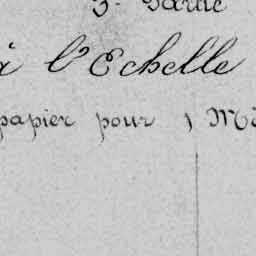 3e Partie
à l'Echelle
papier pour 1 M